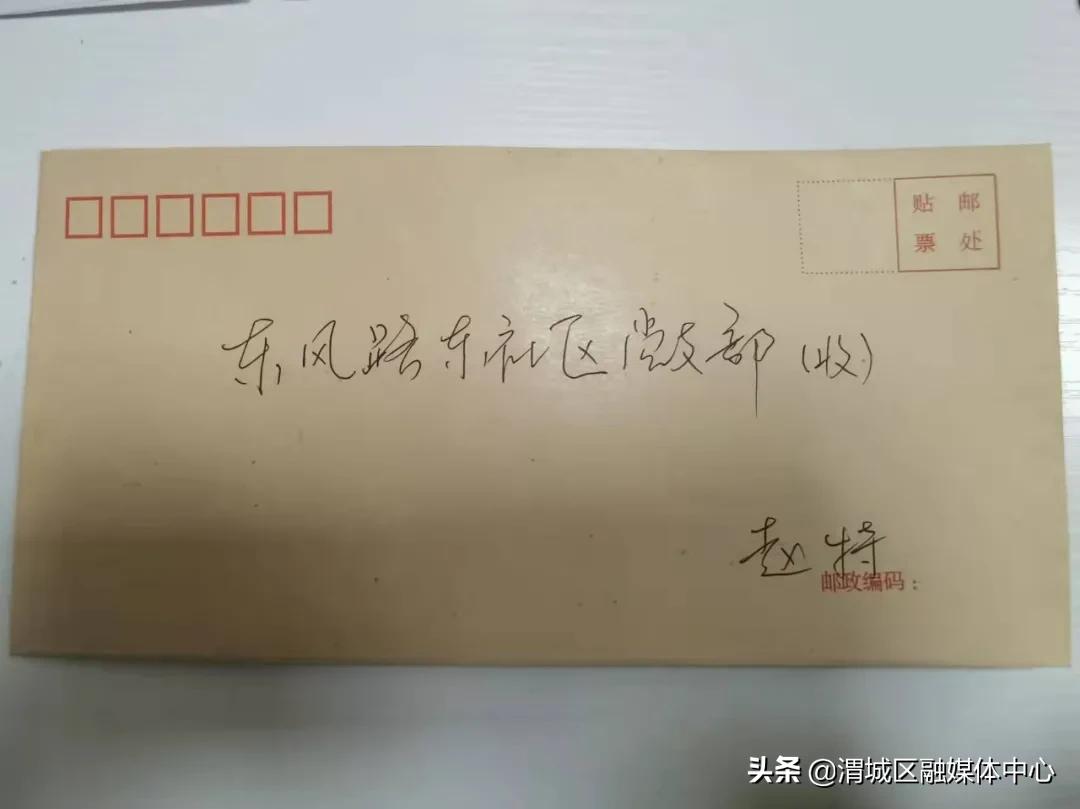 贴 邮
票 处
东风路东社区党支部(收)
赵特
邮政编码：
头条 @渭城区融媒体中心